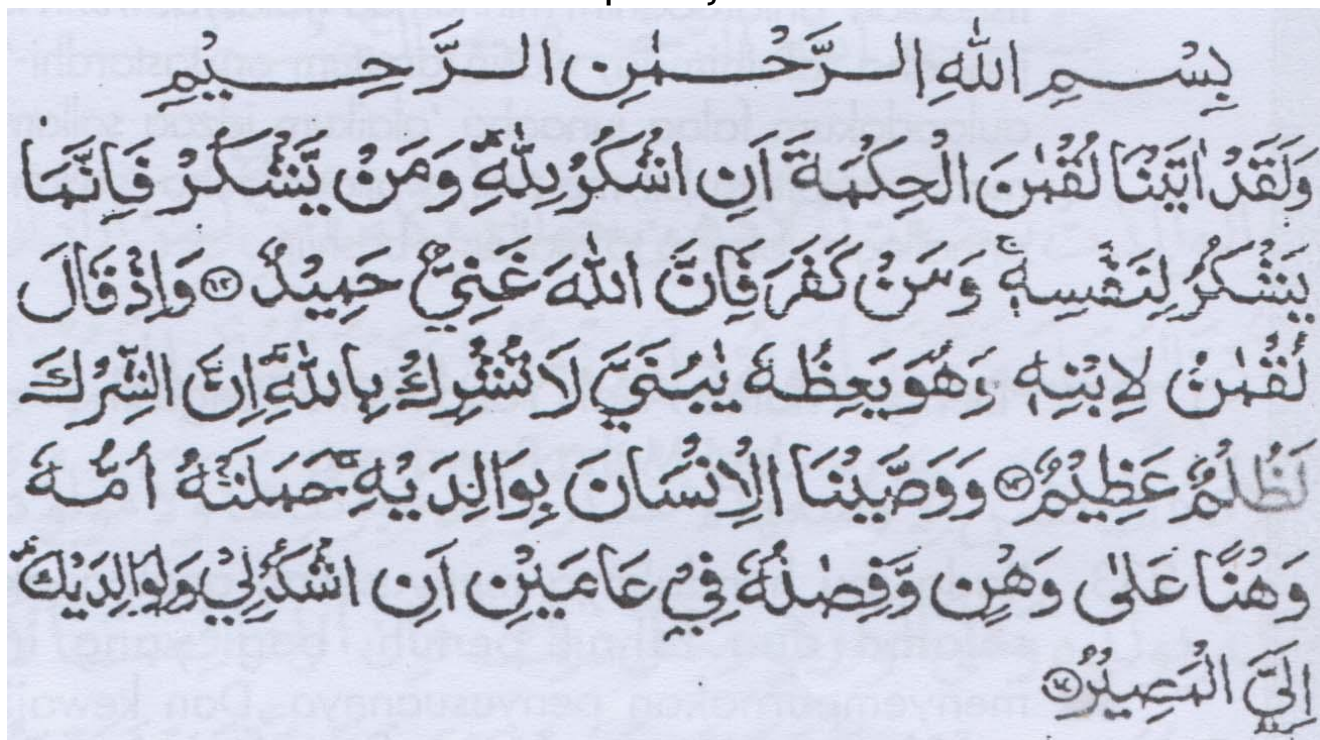 بِسْمِ اللهِ الرَّحْمٰنِ الرَّحِيْمِ
وَلَقَدْ اٰتَيْنَا لُقْمٰنَ الْحِكْمَةَ اَنِ اشْكُرْ لِلّٰهِ ۗ وَمَنْ يَّشْكُرْ فَاِنَّمَا
يَشْكُرُ لِنَفْسِهٖ ۚ وَمَنْ كَفَرَ فَاِنَّ اللهَ غَنِيٌّ حَمِيْدٌ ﴿١٢﴾ وَاِذْ قَالَ
لُقْمٰنُ لِابْنِهٖ وَهُوَ يَعِظُهٗ يٰبُنَيَّ لَا تُشْرِكْ بِاللهِ ۗ اِنَّ الشِّرْكَ
لَظُلْمٌ عَظِيْمٌ ﴿١٣﴾ وَوَصَّيْنَا الْاِنْسَانَ بِوَالِدَيْهِ ۚ حَمَلَتْهُ اُمُّهٗ
وَهْنًا عَلٰى وَهْنٍ وَّفِصٰلُهٗ فِيْ عَامَيْنِ اَنِ اشْكُرْ لِيْ وَلِوَالِدَيْكَ ۗ
اِلَيَّ الْمَصِيْرُ ﴿١٤﴾